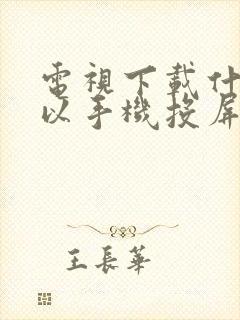 電視下載什
以手機投屏
王長華